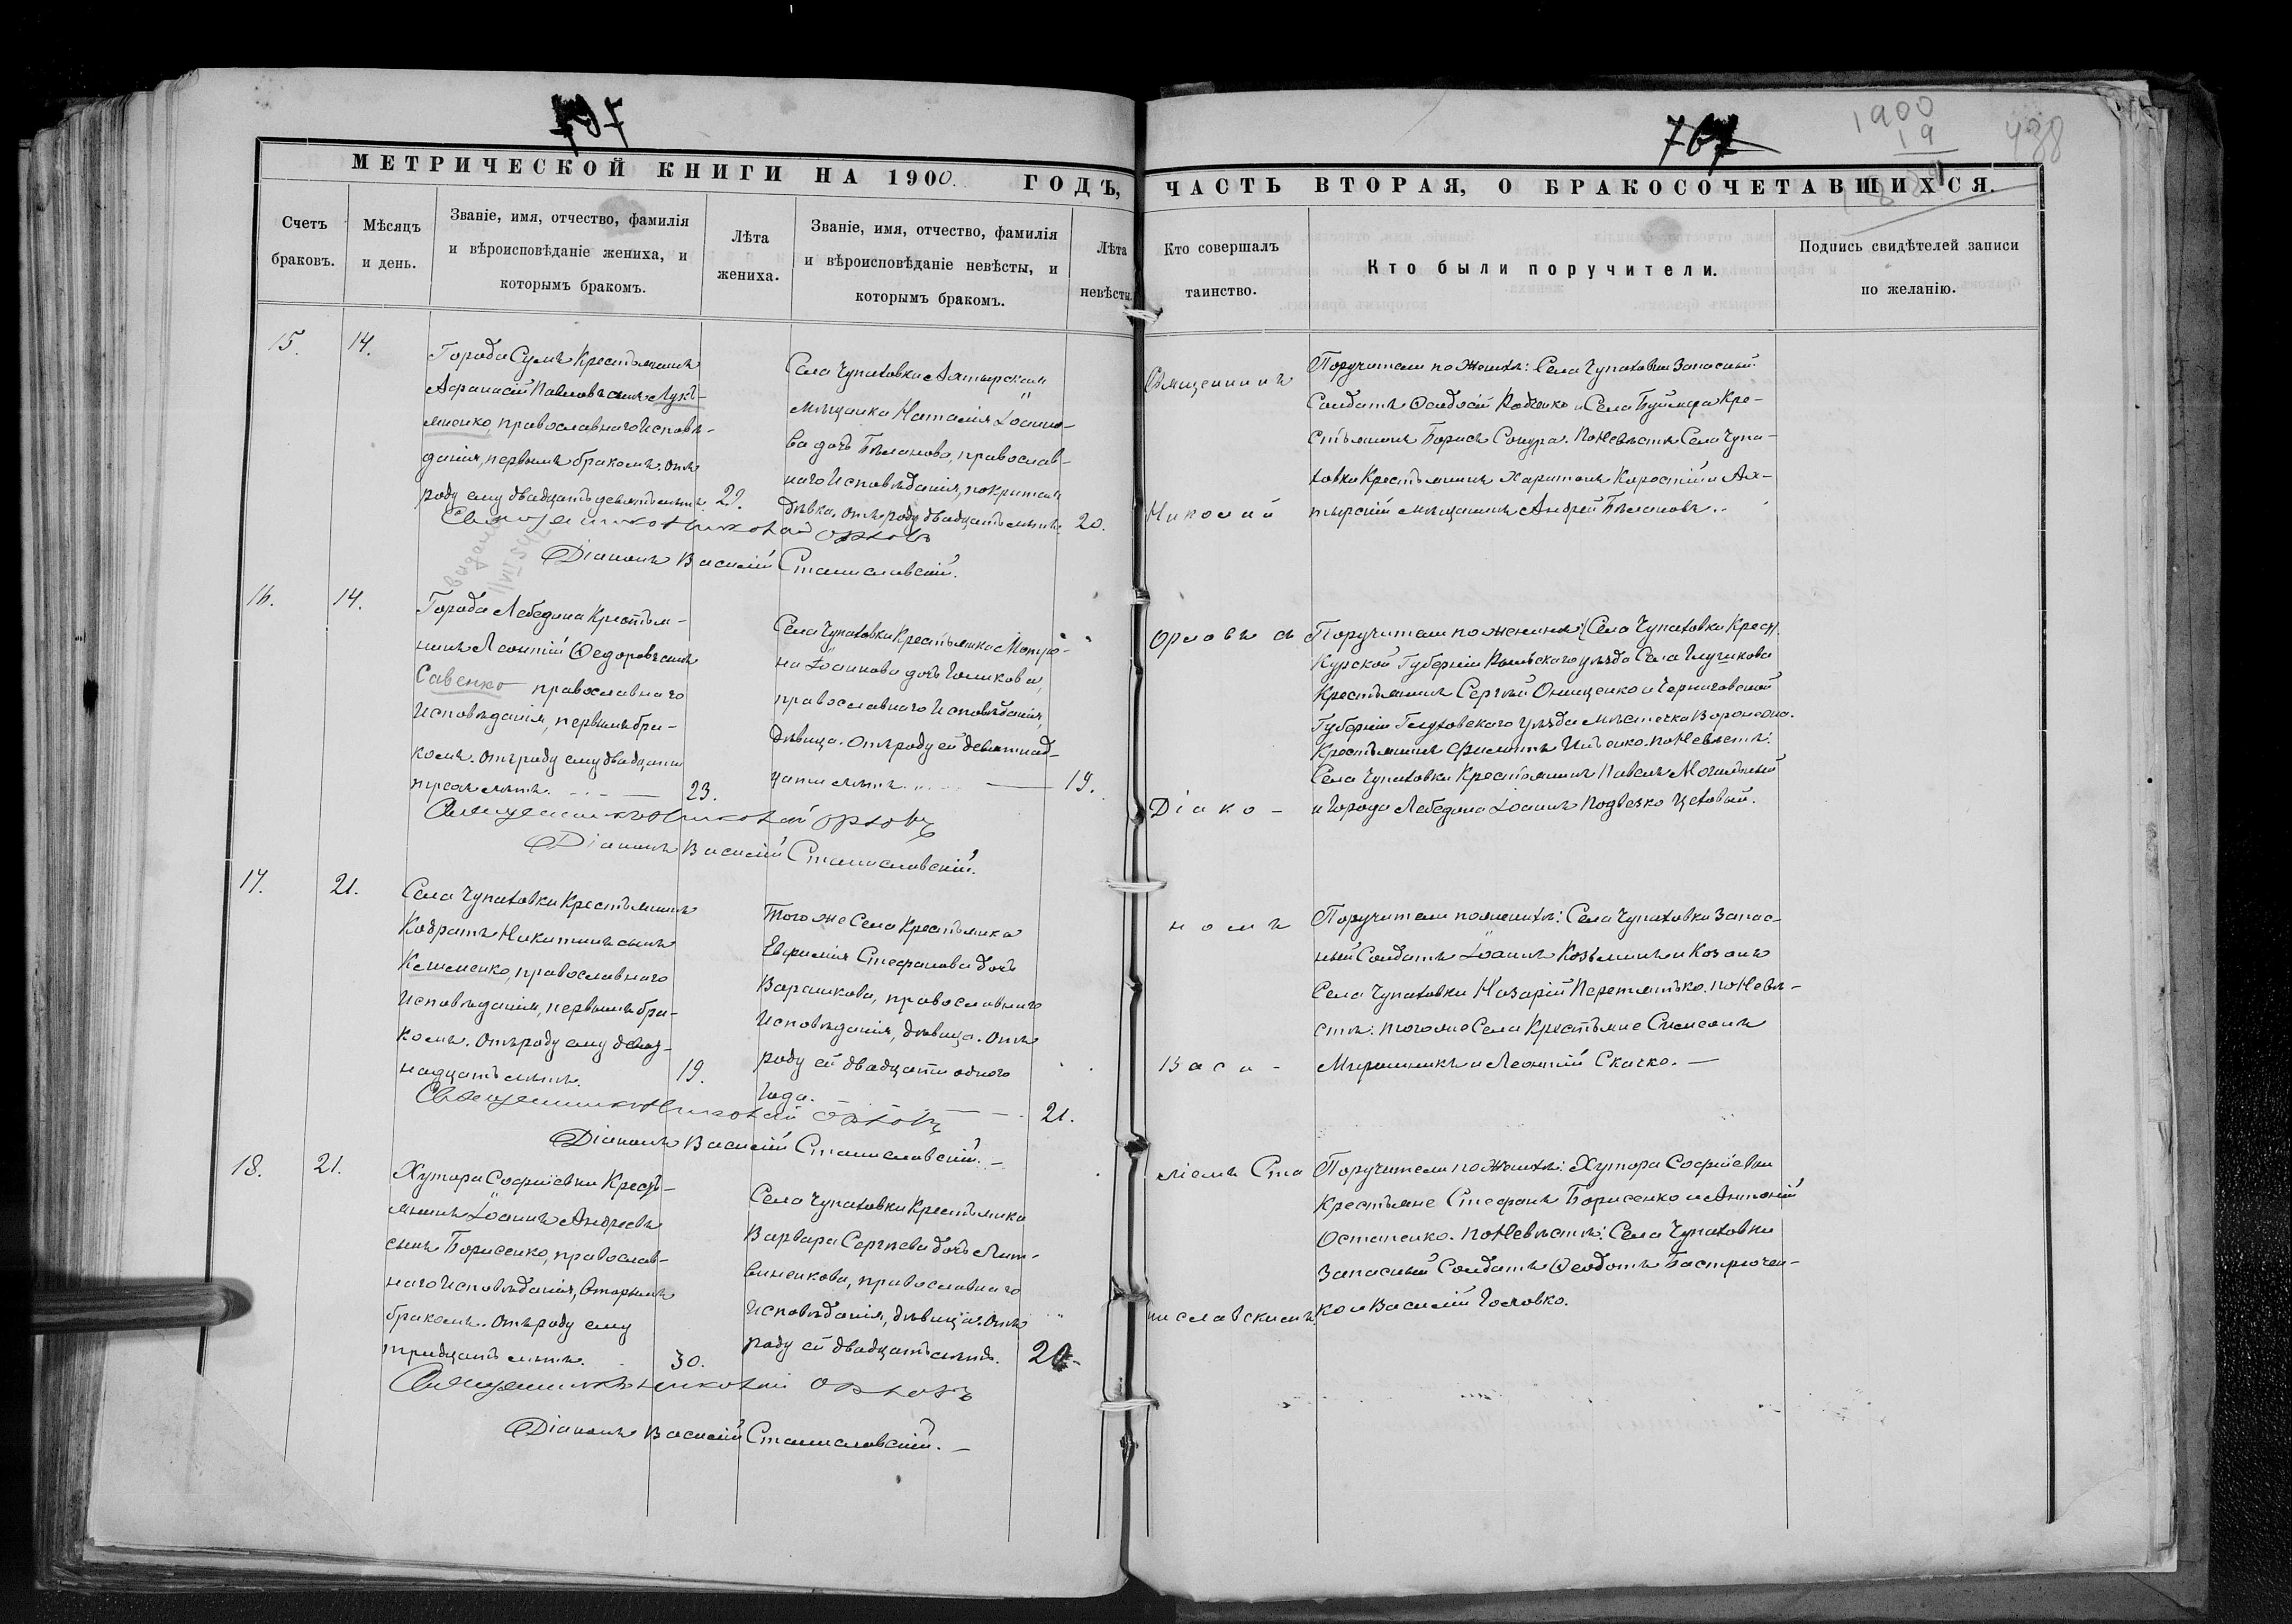 797
МЕТРИЧЕСКОЙ КНИГИ НА 1900 ГОДЪ,
Счетъ браковъ.
Мѣсяцъ и день.
Званіе, имя, отчество, фамилія
и вѣроисповѣданіе жениха, и
которымъ бракомъ.
Лѣта жениха.
Званіе, имя, отчество, фамилія
и вѣроисповѣданіе невѣсты, и
которымъ бракомъ.
Лѣта невѣсты.
15.
14.
Города Сумъ Крестьянинъ
Афанасій Павловъ сынъ
православнаго Исповѣ-
данія, первымъ бракомъ. Отъ
роду ему двадцать девять лѣтъ.
29.
Села Чупаховки Ахтырская
мѣщанка Наталія Іоанно-
ва дочь Бѣланова, православ-
наго Исповѣданія,
дѣвка. Отъ роду двадцать лѣтъ.
20.
Священникъ Николай Орловъ
Діаконъ Василій Станиславскій.
16.
14.
Города Лебедина Крестья-
нинъ Леонтій Ѳедоровъ сынъ
Савенко православнаго
Исповѣданія, первымъ бра-
комъ. Отъ роду ему двадцати
трехъ лѣтъ.
23.
Села Чупаховки Крестьянка Матро-
на Іоаннова дочь Голикова,
православнаго Исповѣданія,
дѣвица. Отъ роду ей девятнад-
цати лѣтъ.
19.
Священникъ Николай Орловъ
Діаконъ Василій Станиславскій.
17.
21.
Села Чупаховки Крестьянинъ
Кодратъ Никитинъ сынъ
Клименко, православнаго
Исповѣданія, первымъ бра-
комъ. Отъ роду ему девят-
надцать лѣтъ.
19.
Того же Села Крестьянка
Евфимія Стефанова дочь
Варакова, православнаго
Исповѣданія, дѣвица. Отъ
роду ей двадцати одного
года.
21.
Священникъ Николай Орловъ
Діаконъ Василій Станиславскій.
18.
21.
Хутора Софіевки Кресть-
янинъ Іоаннъ Андреевъ
сынъ Борисенко, православ-
наго Исповѣданія, Вторымъ
бракомъ. Отъ роду ему
тридцать лѣтъ.
30.
Села Чупаховки Крестьянка
Варвара Сергіева дочь Лит-
виненкова, православнаго
Исповѣданія, дѣвица. Отъ
роду ей двадцать лѣтъ.
20.
Священникъ Николай Орловъ
Діаконъ Василій Станиславскій.
767
1900
19
438
ЧАСТЬ ВТОРАЯ, О БРАКОСОЧЕТАВШИХСЯ.
Кто совершалъ таинство.
Кто были поручители.
Подпись свидѣтелей записи
по желанію.
Священникъ
Николай
Орловъ съ
Діако-
номъ
Васи-
ліемъ Ста
ниславскимъ.
Поручители по Женихѣ: Села Чупаховки Запасный
Солдатъ Ѳеодосій и Села Буймера Кре-
стьянинъ Борисъ Сонура. По Невѣстѣ Села Чупа-
ховки Крестьянинъ Харитонъ Коростій и Ах-
тырскій мѣщанинъ Андрей Бѣлановъ.
Поручители по женихѣ: Села Чупаховки Крест.
Курской Губерніи Рыльскаго уѣзда Села
Крестьянинъ Сергѣй Онищенко и Черниговской
Губерніи Глуховскаго уѣзда мѣстечка Воронежа
Крестьянинъ Филиппъ Ильенко. По Невѣстѣ:
Села Чупаховки Крестьянинъ Павелъ Могильный
и города Лебедина Іоаннъ цеховый.
Поручители по женихѣ: Села Чупаховки Запас-
ный Солдатъ Іоаннъ Козьминъ и Козакъ
Села Чупаховки Назарій Перетятько. по Невѣ-
стѣ: того же Села Крестьяне Симеонъ
Мирошникъ и Леонтій Скачко.
Поручители по Женихѣ: Хутора Софіевки
Крестьяне Стефанъ Борисенко и Антоній
Остапенко. По Невѣстѣ: Села Чупаховки
Запасный Солдатъ Ѳеодотъ Бастрючен-
ко и Василій Головко.